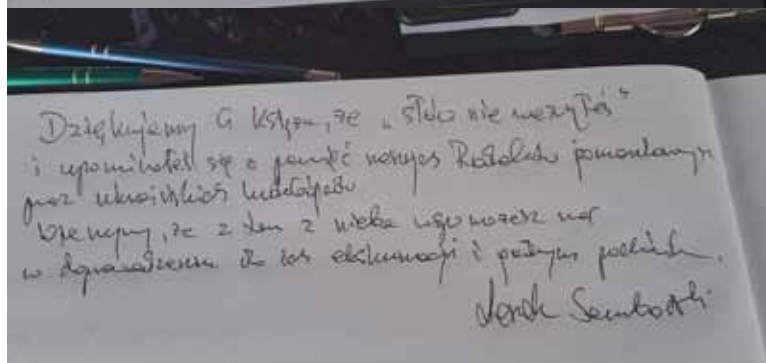 Dziękujemy Ci Księże, że „słów nie ważyłeś"
i upominałeś się o pamięć naszych Rodaków pomordowanych
przez ukraińskich ludobójców
Wierzymy, że z tam z nieba wspomożesz nas
w doprowadzeniu do ich ekshumacji i godnym pochówku.